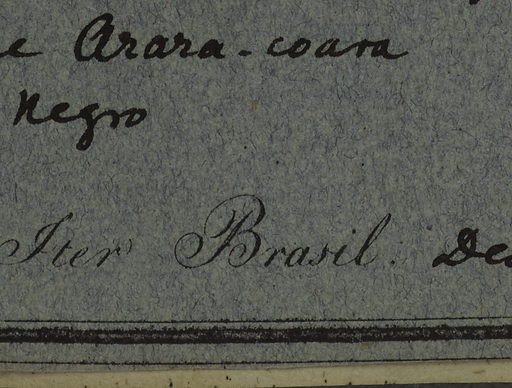 e Arara-coara
Negro
Iter Brasil. Des